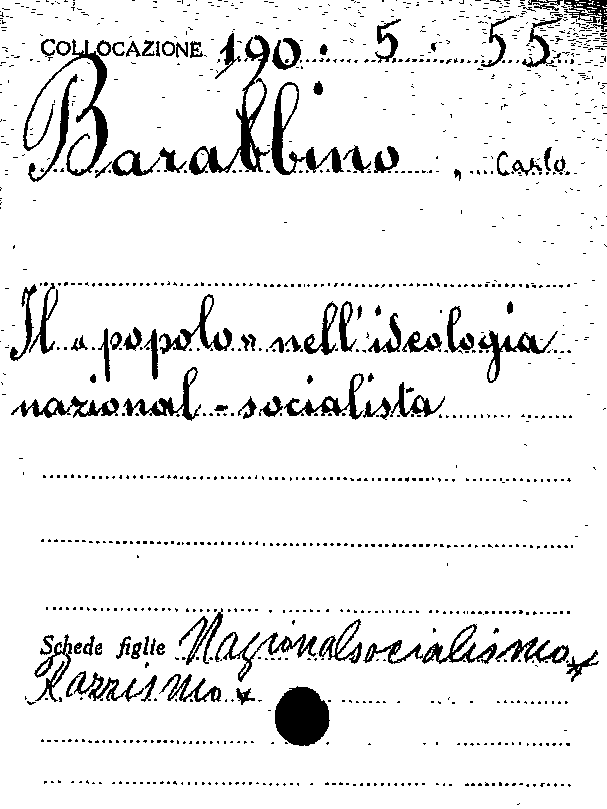 COLLOCAZIONE 190. 5. 55
Barabbino, Carlo
Il "popolo" nell'ideologia
nazional-socialista
Schede figlie Nazionalsocialismo*
Razzismo*